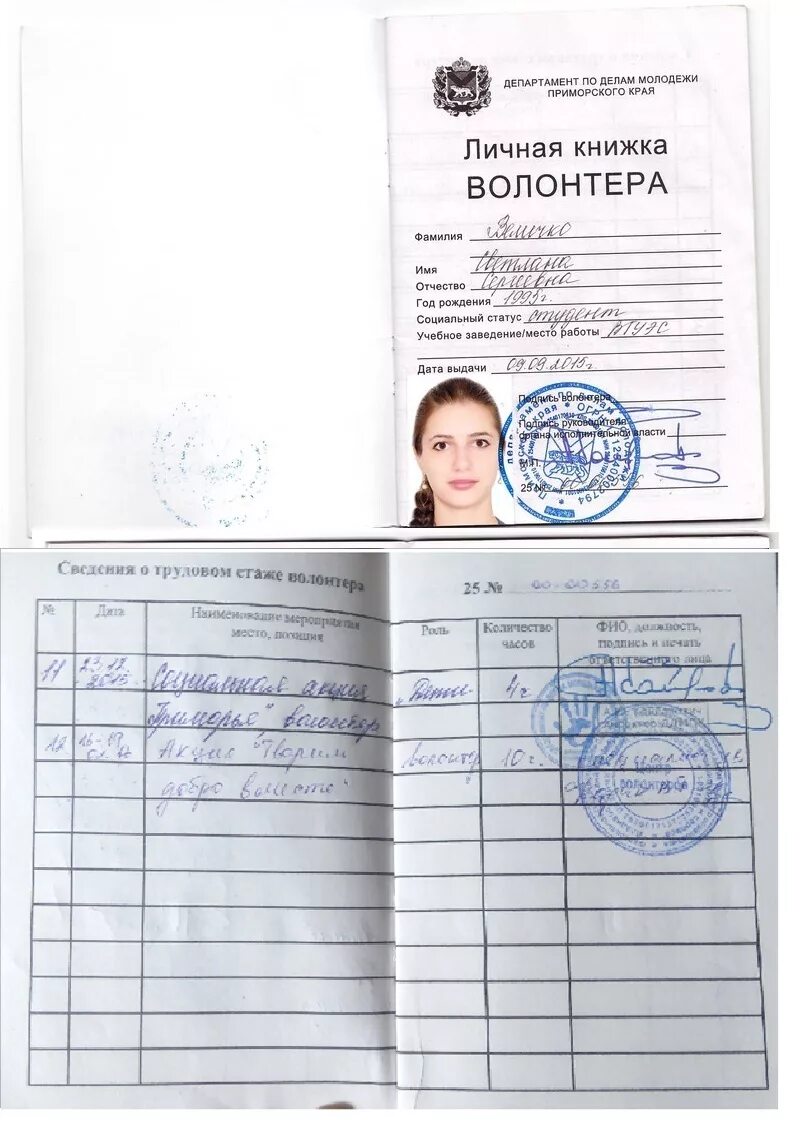 ДЕПАРТАМЕНТ ПО ДЕЛАМ МОЛОДЕЖИ
ПРИМОРСКОГО КРАЯ
Личная книжка
ВОЛОНТЕРА
Фамилия Величко
Имя Светлана
Отчество Сергеевна
Год рождения 1995г.
Социальный статус студент
Учебное заведение/место работы ВГУЭС
Дата выдачи 09.09.2015г.
Подпись волонтера
Подпись руководителя
органа исполнительной власти
М.П.
25 №
Сведения о трудовом стаже волонтера
25 № 00-00556
№ Дата Наименование мероприятия место, позиция Роль Количество часов ФИО, должность, подпись и печать ответственного лица
11 23.12. 2015 Социальная акция "Дети 4г
Приморья", волонтер
12 Акция "Творим волонтер 10г.
добро вместе"